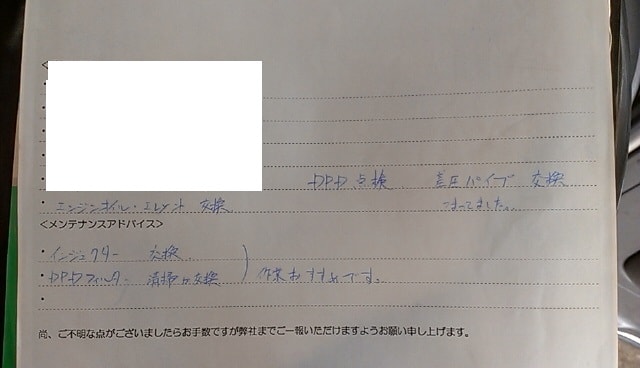 DPD点検 差圧パイプ 交換
・エンジンオイル・エレメント 交換 つまってました。
<メンテナンスアドバイス>
・インジェクター 交換
・DPDフィルター 清掃か交換 ) 作業おすすめです。
・
尚、ご不明な点がございましたらお手数ですが弊社までご一報いただけますようお願い申し上げます。